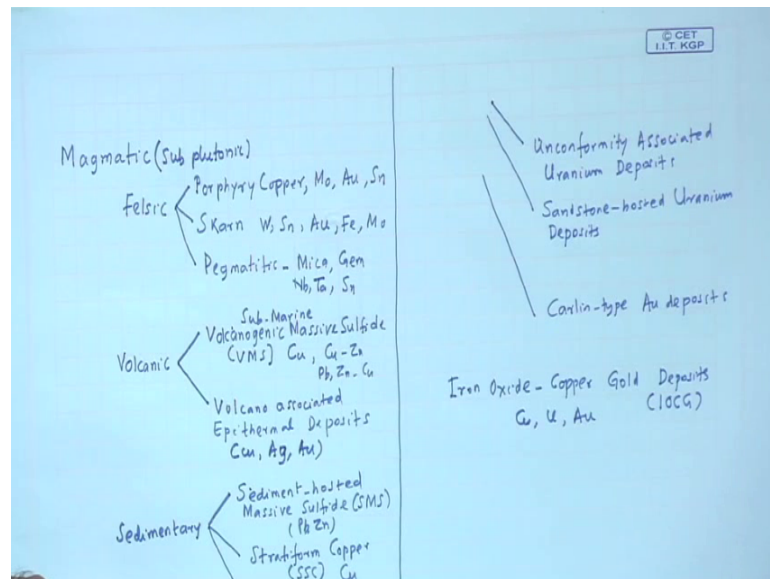 © CET
I.I.T. KGP
Magmatic (Sub plutonic)
Felsic
Porphyry Copper, Mo, Au, Sn
Skarn W, Sn, Au, Fe, Mo
Pegmatitic - Mica, Gem
Nb, Ta, Sn
Volcanic
Sub-Marine
Volcanogenic Massive Sulfide
(VMS] Cu, Cu-Zn
Pb, Zn-Cu
Volcano associated
Epithermal Deposits
(Cu, Ag, Au)
Sedimentary
Sediment-hosted
Massive Sulfide (SMS)
(Pb Zn)
Stratiform Copper
(SSC) Cu
Unconformity Associated
Uranium Deposits
Sandstone-hosted Uranium
Deposits
Carlin-type Au deposits
Iron Oxide-Copper Gold Deposits
Cu, U, Au (IOCG)